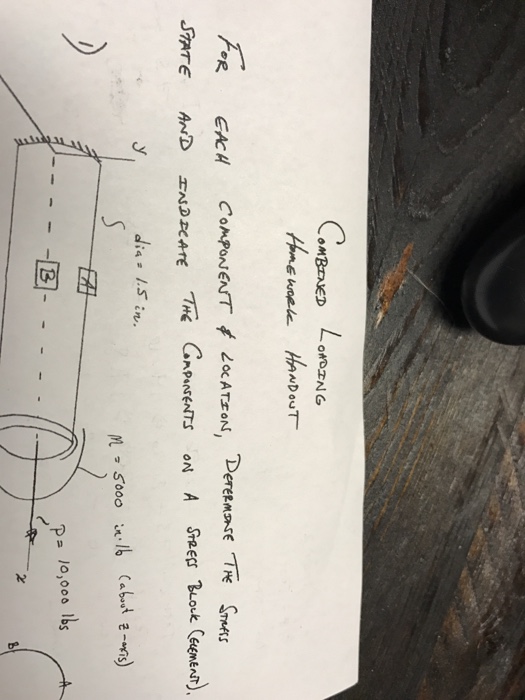 COMBINED LOADING
HOMEWORK HANDOUT
FOR EACH COMPONENT & LOCATION, DETERMINE THE STRESS
STATE AND INDICATE THE COMPONENTS ON A STRESS BLOCK (ELEMENT).
1)
y
dia = 1.5 in.
M = 5000 in·lb (about z-axis)
A
B
P = 10,000 lbs
x
A
B